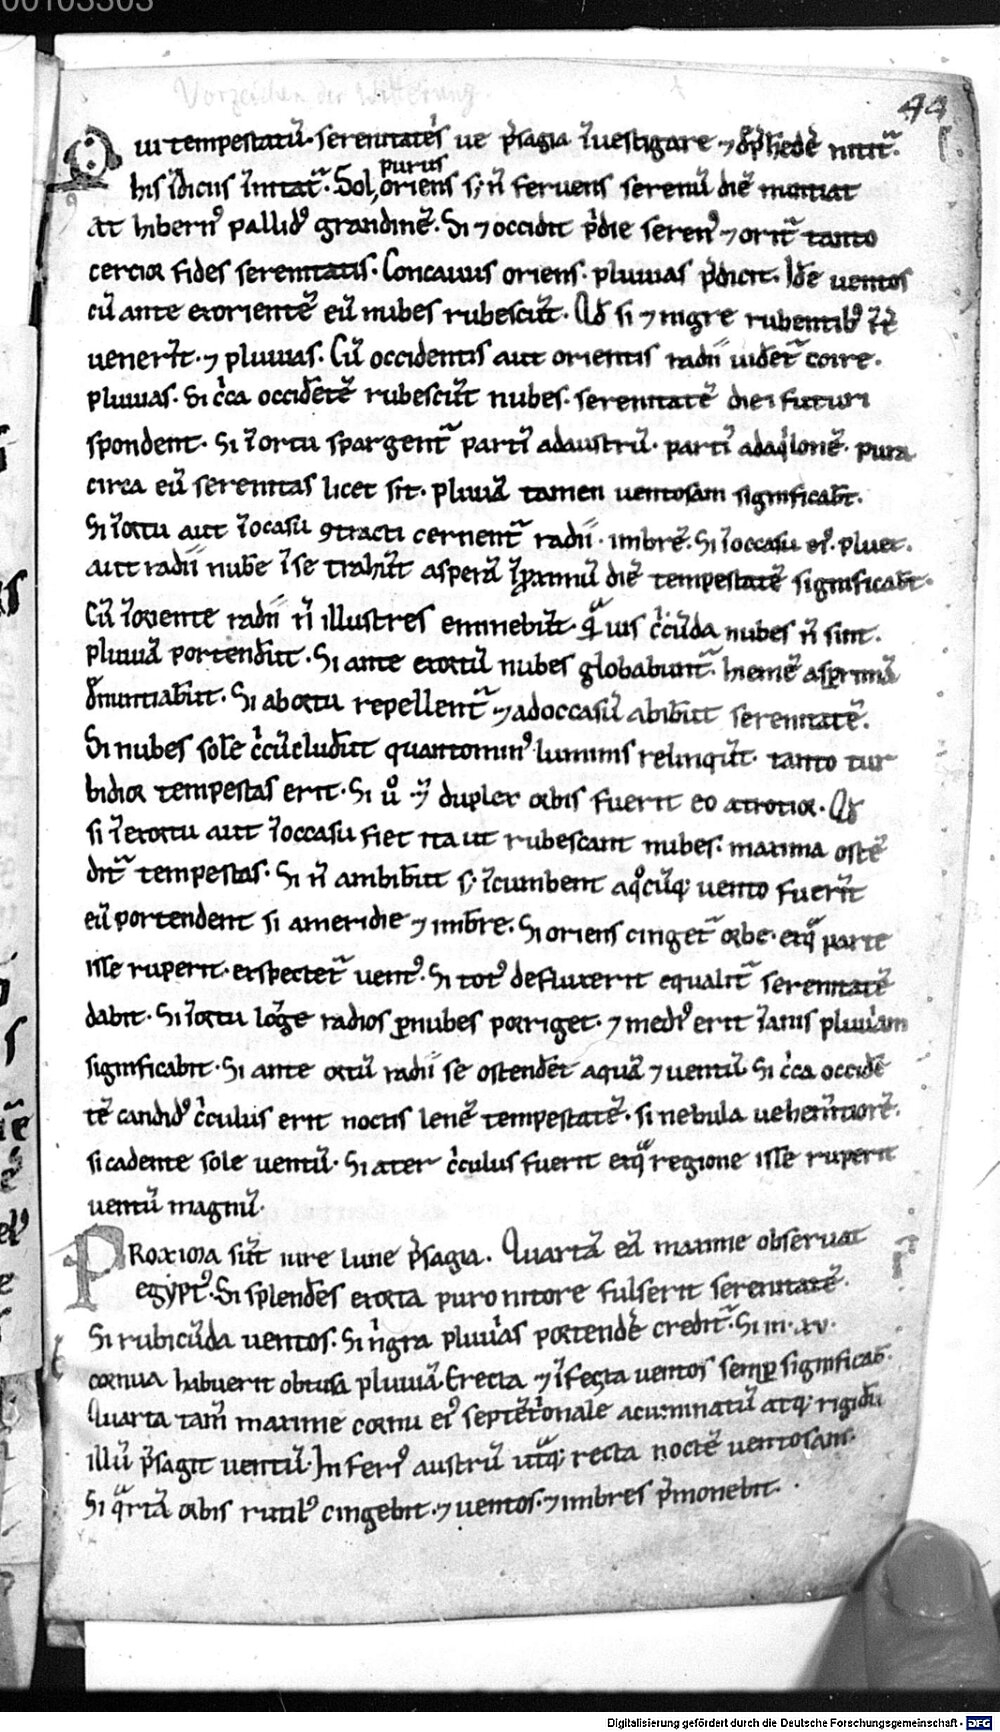 00103303
Vorzeichen der Witterung.
44
Qui tempestatū. serenitatēs ue p̄sagia īuestigare ⁊ dep̄hēdē nitit᷑.
his īdiciis īnitat᷑. Sol, purus oriens s; n̄ feruens serenū diē nuntiat
at hibern᷒ pallid᷒ grandinē. Si ⁊ occidit p̄die seren᷒ ⁊ orit᷑ tanto
cercior fides serenitatis. Concauus oriens. pluuias p̄dicit. Idē uentos
cū ante exorientē eū nubes rubescūt. Qd̄ si ⁊ nigre rubentib᷒ īt̄
uenerīt. ⁊ pluuias. Cū occidentis aut orientis radii uidēt᷑ coire.
pluuias. Si c̄ca occidētē rubescūt nubes. serenitatē diei futuri
spondent. Si ī ortu spargent᷑ partī ad austrū. partī ad aq̇lonē. pura
circa eū serenitas licet sit. pluuiā tamen uentosam significab̄t.
Si ī ortu aut ī ocasu ꝯtracti cernent᷑ radii. imbrē. Si ī occasu ei᷒. pluet.
aut radii nube ī se trahūt asperā ī ꝓximū diē tempestatē significab̄t.
Cū ī oriente radii n̄ illustres eminebūt. q̄uis c̄cūda nubes n̄ sint.
pluuiā portendūt. Si ante exortū nubes globabunt᷑. hiemē asꝑrimā
denuntiabūt. Si ab ortu repellent᷑ ⁊ ad occasū abibūt serenitatē.
Si nubes solē c̄cūcludūt quanto min᷒ luminis relinqūt. tanto tur
bidior tempestas erit. Si u̇ ⁊ duplex orbis fuerit eo atrotior. Qd̄
si ī exortu aut ī occasu fiet ita ut rubescant nubes. maxima ostē
dit᷑ tempestas. Si n̄ ambibūt s; īcumbent a q̊cūq; uento fuerīt
eū portendent si a meridie ⁊ imbrē. Si oriens cinget᷑ orbe. ex q̄ parte
isse ruperit. exspectet᷑ uent᷒. Si tot᷒ defluxerit equalit᷑ serenitatē
dabit. Si ī ortu lōge radios ꝑ nubes porriget. ⁊ medi᷒ erit īanis pluuiam
significabit. Si ante ortū radii se ostendēt aquā ⁊ uentū. Si c̄ca occidē
tē candid᷒ c̄culus erit noctis lenē tempestatē. si nebula uehemītiorē.
si cadente sole uentū. Si ater c̄culus fuerit ex q̄ regione isse ruperit
uentū magnū.
PRoxima sūt iure lune p̄sagia. Quartā eā maxime obseruat
egypt᷒. Si splendēs exorta puro nitore fulserit serenitatē.
Si rubicūda uentos. Si nigra pluuias portendē credit᷑. Si in .xv.
cornua habuerit obtusa pluuiā. Erecta ⁊ īfesta uentos semꝑ significāt.
Quarta tam̄ maxime cornu ei᷒ septētrionale acuminatū atq; rigidū
illū p̄sagit uentū. Inferi᷒ austrū ut̄q; recta noctē uentosam.
Si q̄rtā orbis rutil᷒ cingebit. ⁊ uentos. ⁊ imbres p̄monebit.
Digitalisierung gefördert durch die Deutsche Forschungsgemeinschaft - DFG